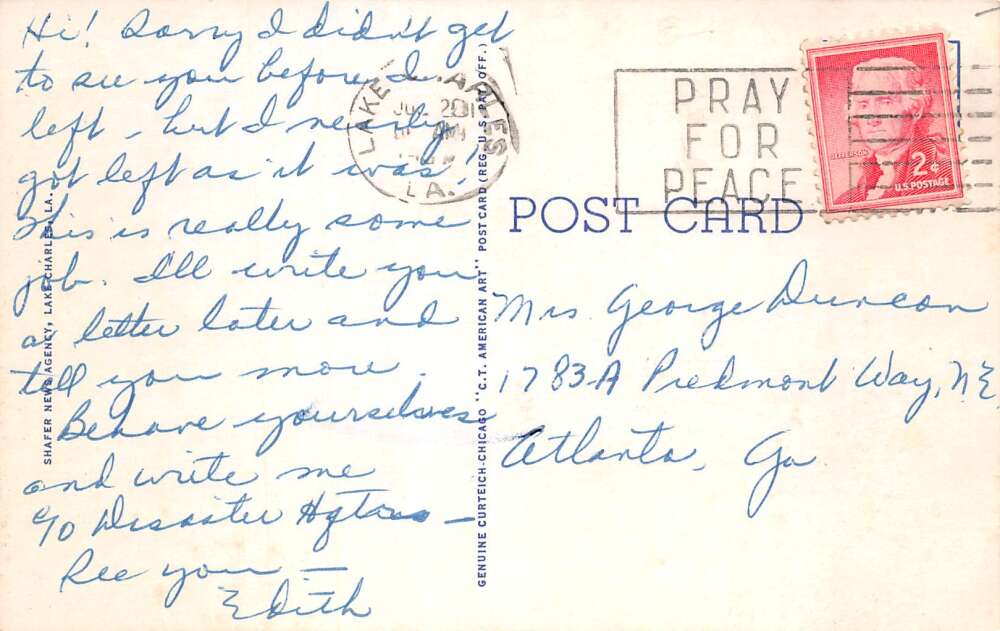 Hi! Sorry I didn't get
to see you before I
left - but I nearly
got left as it was!
This is really some
job. I'll write you
a letter later and
tell you more.
Behave yourselves
and write me
c/o Disaster Hqtrs -
See you -
Edith
SHAFER NEWS AGENCY, LAKE CHARLES, LA.
GENUINE CURTEICH-CHICAGO "C.T. AMERICAN ART" POST CARD (REG. U.S. PAT. OFF.)
LAKE CHARLES
LA.
PRAY
FOR
PEACE
JEFFERSON
2¢
U.S. POSTAGE
POST CARD
Mrs George Duncan
1783-A Piedmont Way, N.E.
Atlanta, Ga